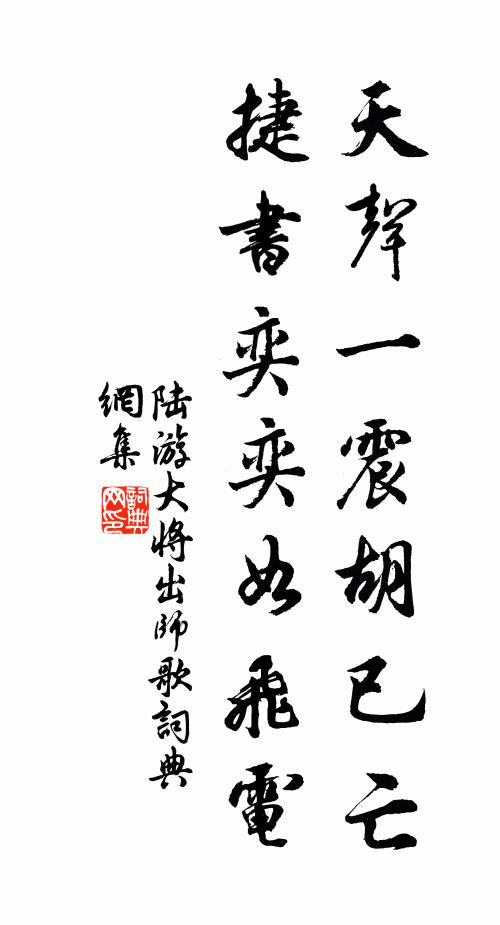 天聲一震胡已亡
捷書奕奕如飛電
陸游大將出師歌詞典
網集
詞典網印